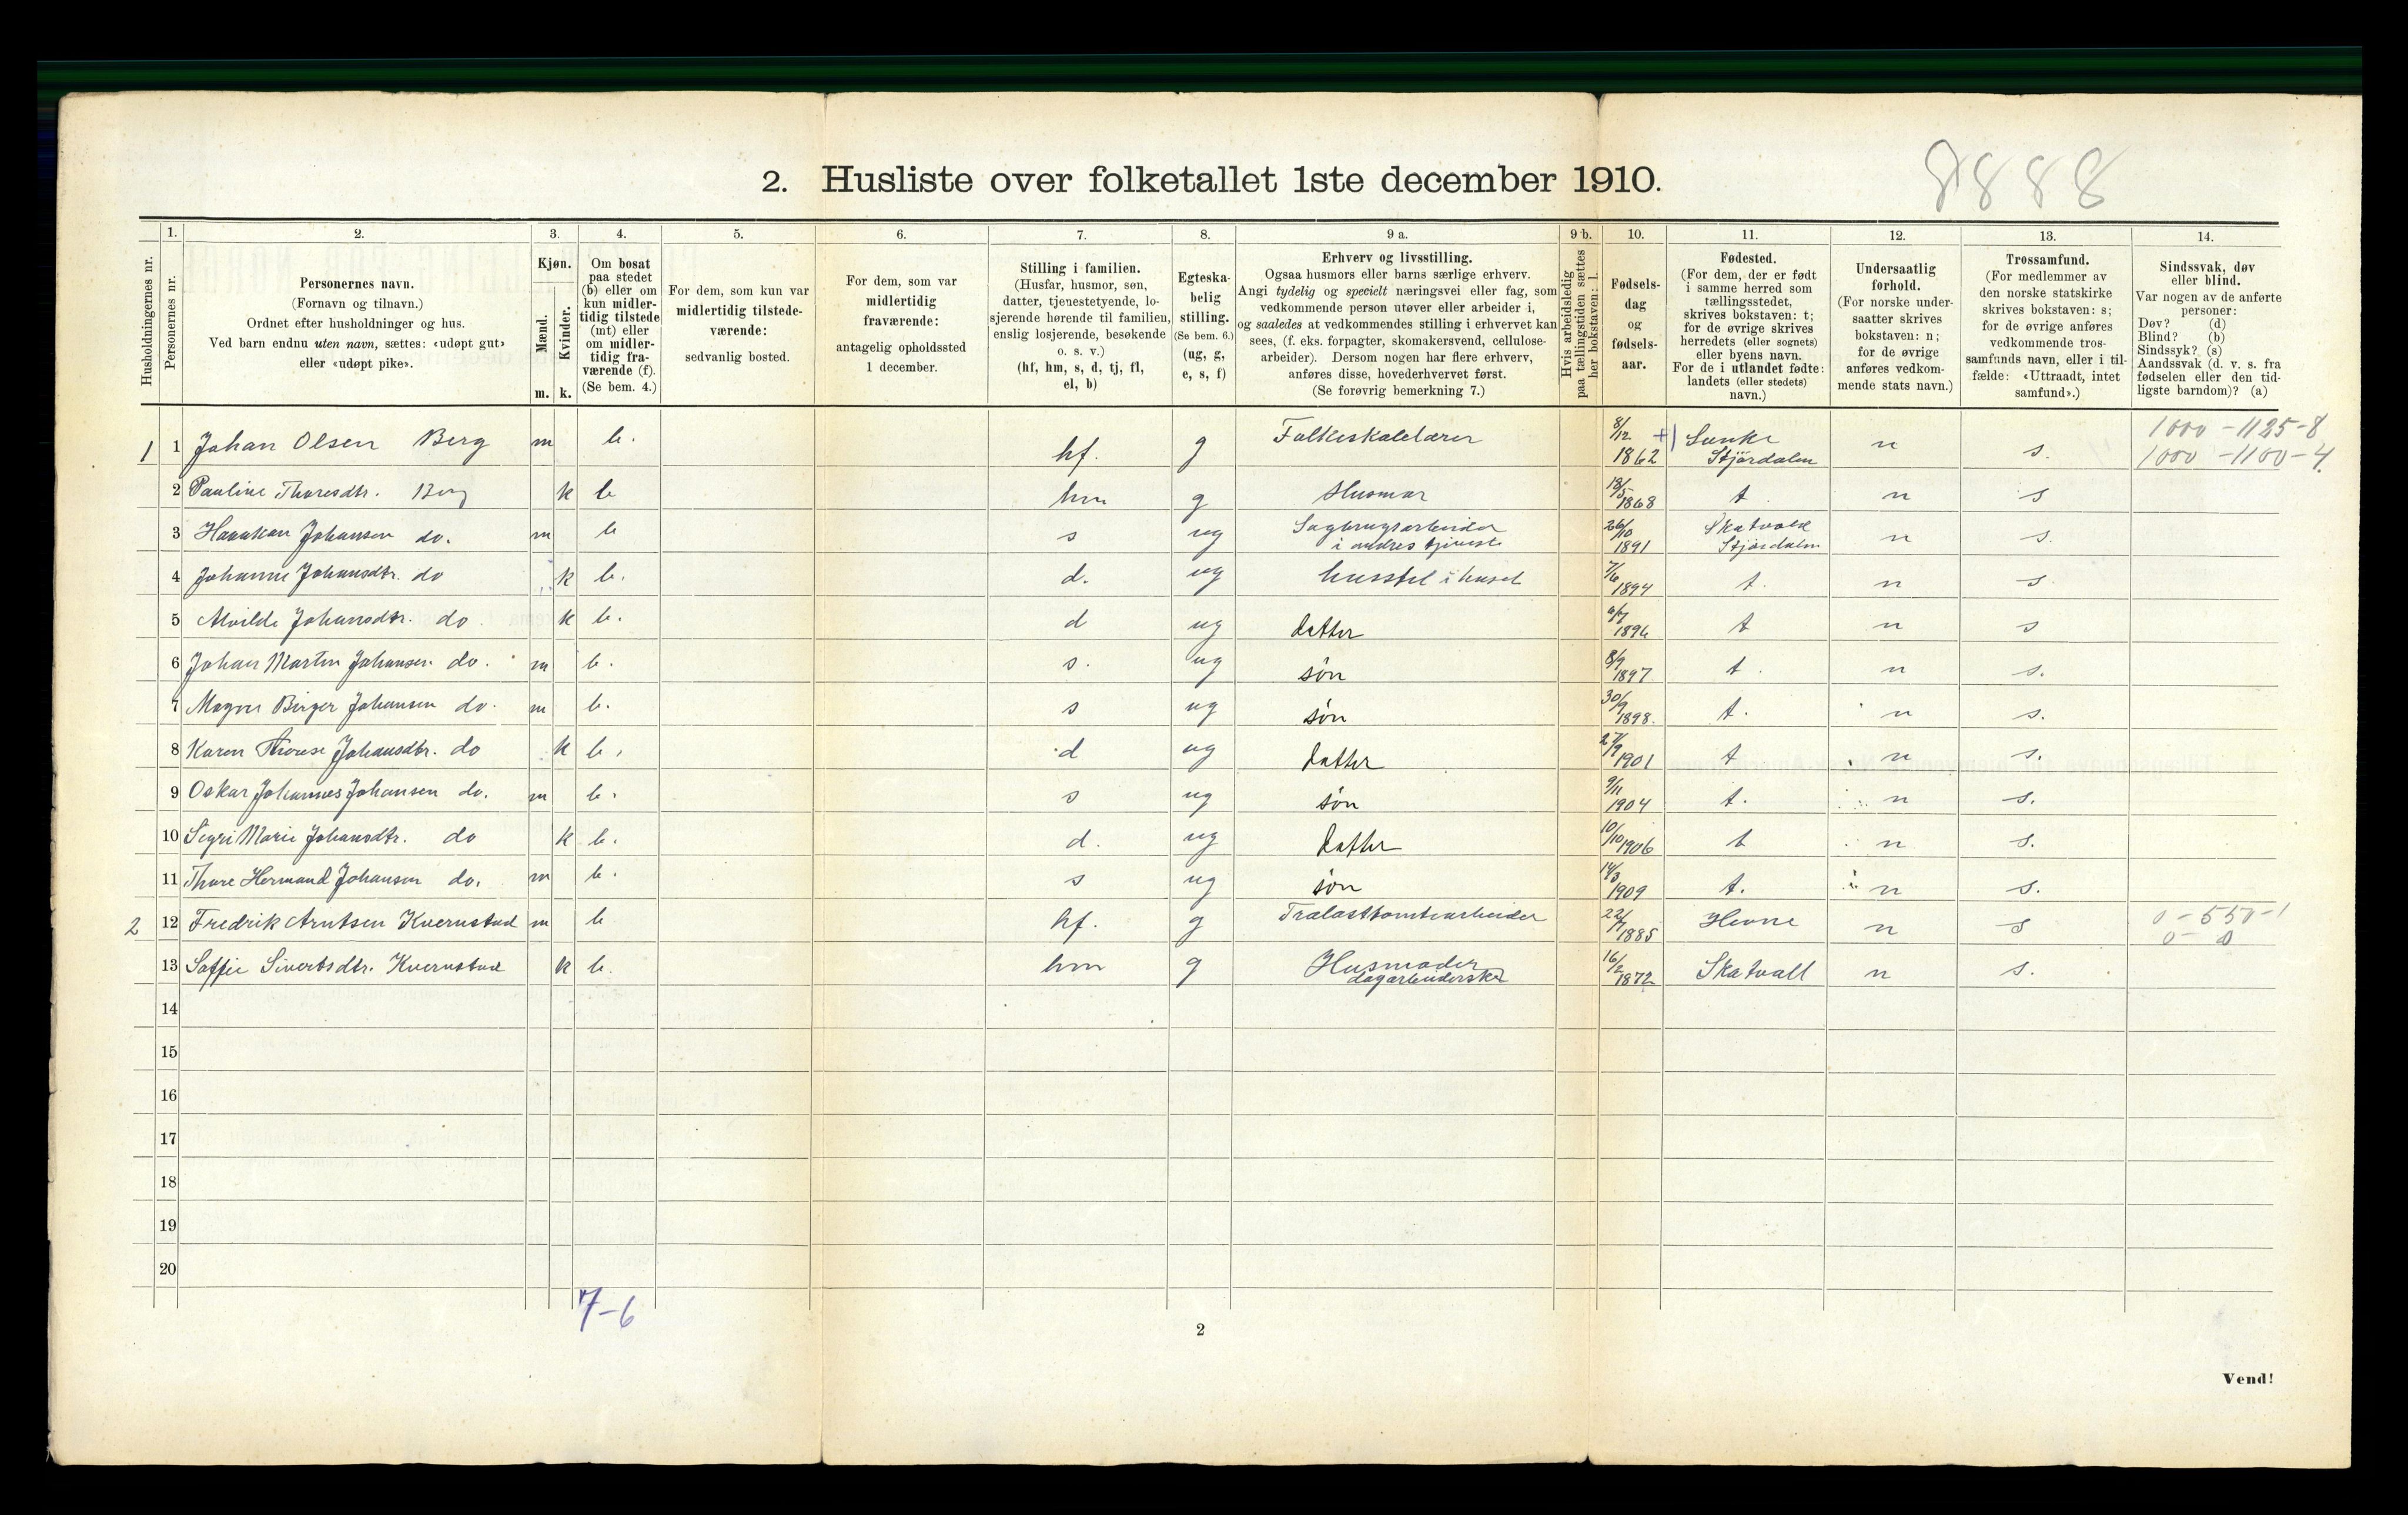 8888
2. Husliste over folketallet 1ste december 1910.
Husholdningernes nr.
1.
Personernes nr.
2.
Personernes navn.
(Fornavn og tilnavn.)
Ordnet efter husholdninger og hus.
Ved barn endnu uten navn, sættes: «udøpt gut»
eller «udøpt pike».
3.
Kjøn.
Mænd.
Kvinder.
m. k.
4.
Om bosat
paa stedet
(b) eller om
kun midler-
tidig tilstede
(mt) eller
om midler-
tidig fra-
værende (f).
(Se bem. 4.)
5.
For dem, som kun var
midlertidig tilstede-
værende:
sedvanlig bosted.
6.
For dem, som var
midlertidig
fraværende:
antagelig opholdssted
1 december.
7.
Stilling i familien.
(Husfar, husmor, søn,
datter, tjenestetyende, lo-
sjerende hørende til familien,
enslig losjerende, besøkende
o. s. v.)
(hf, hm, s, d, tj, fl,
el, b)
8.
Egteska-
belig
stilling.
(Se bem. 6.)
(ug, g,
e, s, f)
9 a.
Erhverv og livsstilling.
Ogsaa husmors eller barns særlige erhverv.
Angi tydelig og specielt næringsvei eller fag, som
vedkommende person utøver eller arbeider i,
og saaledes at vedkommendes stilling i erhvervet kan
sees, (f. eks. forpagter, skomakersvend, cellulose-
arbeider). Dersom nogen har flere erhverv,
anføres disse, hovederhvervet først.
(Se forøvrig bemerkning 7.)
9 b.
Hvis arbeidsledig
paa tællingstiden sættes
her bokstaven: l.
10.
Fødsels-
dag
og
fødsels-
aar.
11.
Fødested.
(For dem, der er født
i samme herred som
tællingsstedet,
skrives bokstaven: t;
for de øvrige skrives
herredets (eller sognets)
eller byens navn.
For de i utlandet fødte:
landets (eller stedets)
navn.)
12.
Undersaatlig
forhold.
(For norske under-
saatter skrives
bokstaven: n;
for de øvrige
anføres vedkom-
mende stats navn.)
13.
Trossamfund.
(For medlemmer av
den norske statskirke
skrives bokstaven: s;
for de øvrige anføres
vedkommende tros-
samfunds navn, eller i til-
fælde: «Uttraadt, intet
samfund».)
14.
Sindssvak, døv
eller blind.
Var nogen av de anførte
personer:
Døv? (d)
Blind? (b)
Sindssyk? (s)
Aandssvak (d. v. s. fra
fødselen eller den tid-
ligste barndom)? (a)
1 1 Johan Olsen Berg m b. hf. g Folkeskolelærer 8/12 1862 Stjördalen n s. 1000 - 1125 - 8
1000 - 1100 - 4
2 Pauline Thoresdtr. Berg k b hm g Husmor 18/5 1868 t. n s
3 Haakon Johansen do. m b s ug Sagbrugsarbeider i andres tjeneste 26/10 1891 Skatvold Stjørdalen n s.
4 Johanne Johansdtr. do k b. d. ug husstel i huset 7/6 1894 t. n s
5 Alvilde Johansdtr. do k b. d ug datter 1896 t n s
6 Johan Martin Johansen do. m b. s. ug søn 8/9 1897 t. n s.
7 Magne Birger Johansen do. m b. s ug søn 30/9 1898. t. n s.
8 Karen Johansdtr. do k b. d ug datter 27/9 1901 t n s.
9 Oskar Johannes Johansen do. m b. s ug søn 9/11 1904 t. n s.
10 Sigri Marie Johansdtr. do k b. d. ug datter 10/10 1906 t n s.
11 Thore Hermand Johansen do. m b. s ug søn 14/3 1909 t. n s.
2 12 Fredrik Arntsen Kvernstad m b hf. g Trælasttomtearbeider 22/7 1885 Hevne n s 0 - 550 - 1
0 - 0
13 Soffie Sivertsdtr. Kvernstad k b. hm g Husmoder dagarbeiderske 16/2 1872 Skatvall n s.
14
15
16
17
18
19
20
7-6
2
Vend!